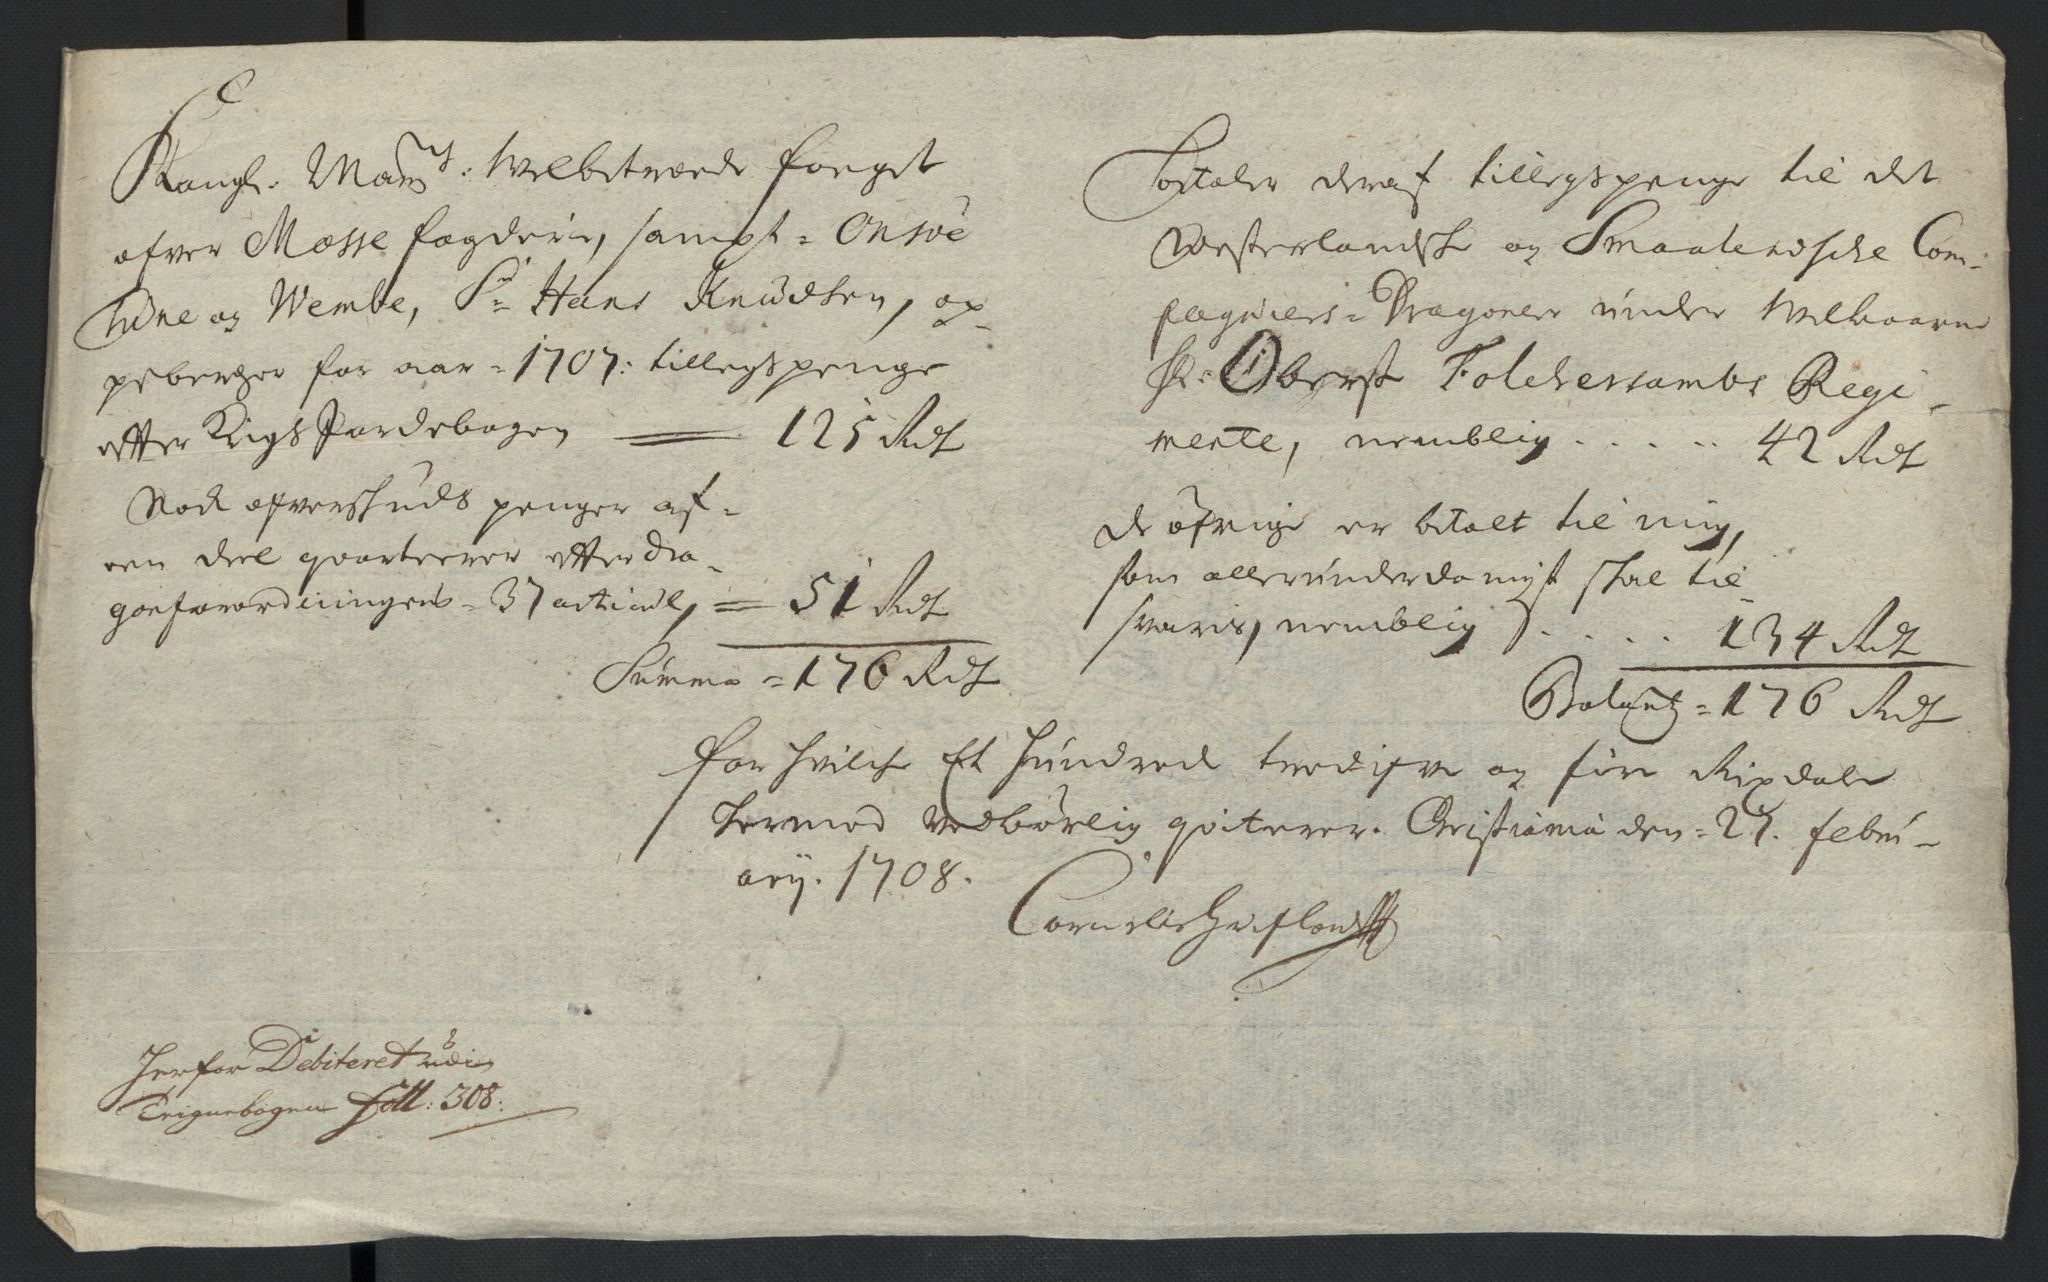 Kongl. Mayts: Welbetroede foeget
ofver Mosse fogderie, sampt = Onsöe
Tune og Wembe, Sr Hans Knudsen, op-
peberger for aar = 1707: tillegspenge
efter Krigs Jordebogen 125 Rdr
Nock ofverskuds penger af-
een deel qvarteerer efter dra-
gonforordningens = 37 articul, = 51 Rdr
Summa = 176 Rdr
betaler deraf tillegspenge til det
Westerlandske og Smaalendsche Com-
pagniers = Dragoner under Welbaarne
Hr. Oberst Folchersambs Regi-
mente, nemblig . . . . . 42 Rdr
de öfrige er betalt til mig,
som allerunderdanigst skal til-
svaris, nemblig . . . . 134 Rdr
Balantz = 176 Rdr
for hvilche Et hundrede tredifve og fire Rixdaler
hermed vedbörlig qviterer. Christiania den = 27. febru-
arij. 1708.
Cornelis
Herfor Debiteret udi
Krignebogen Foll: 308: